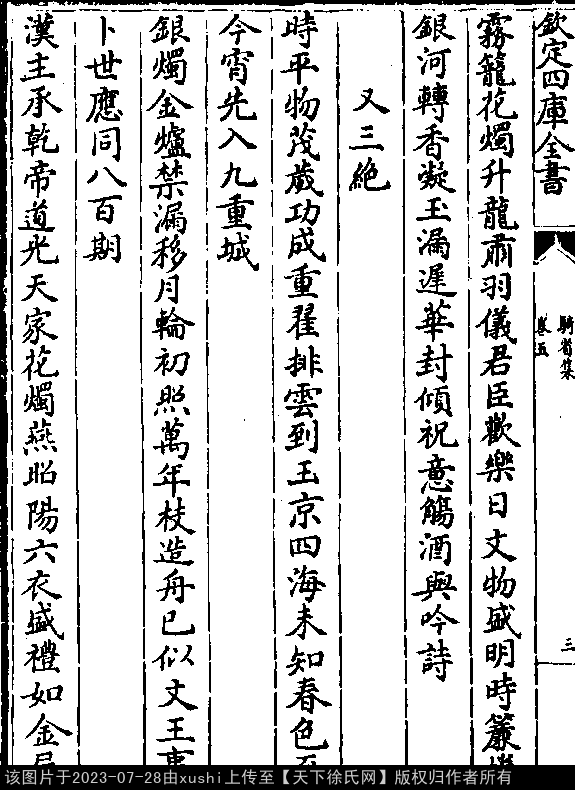 欽定四庫全書
騎省集
卷五
三
霧籠花燭升龍肅羽儀君臣歡樂日文物盛明時簾
銀河轉香凝玉漏遲華封傾祝意觴酒與吟詩
又三絶
時平物茂歲功成重翟排雲到玉京四海未知春色
今宵先入九重城
銀燭金爐禁漏移月輪初照萬年枝造舟已似文王事
卜世應同八百期
漢主承乾帝道光天家花燭燕昭陽六衣盛禮如金
该图片于2023-07-28由xushi上传至【天下徐氏网】版权归作者所有